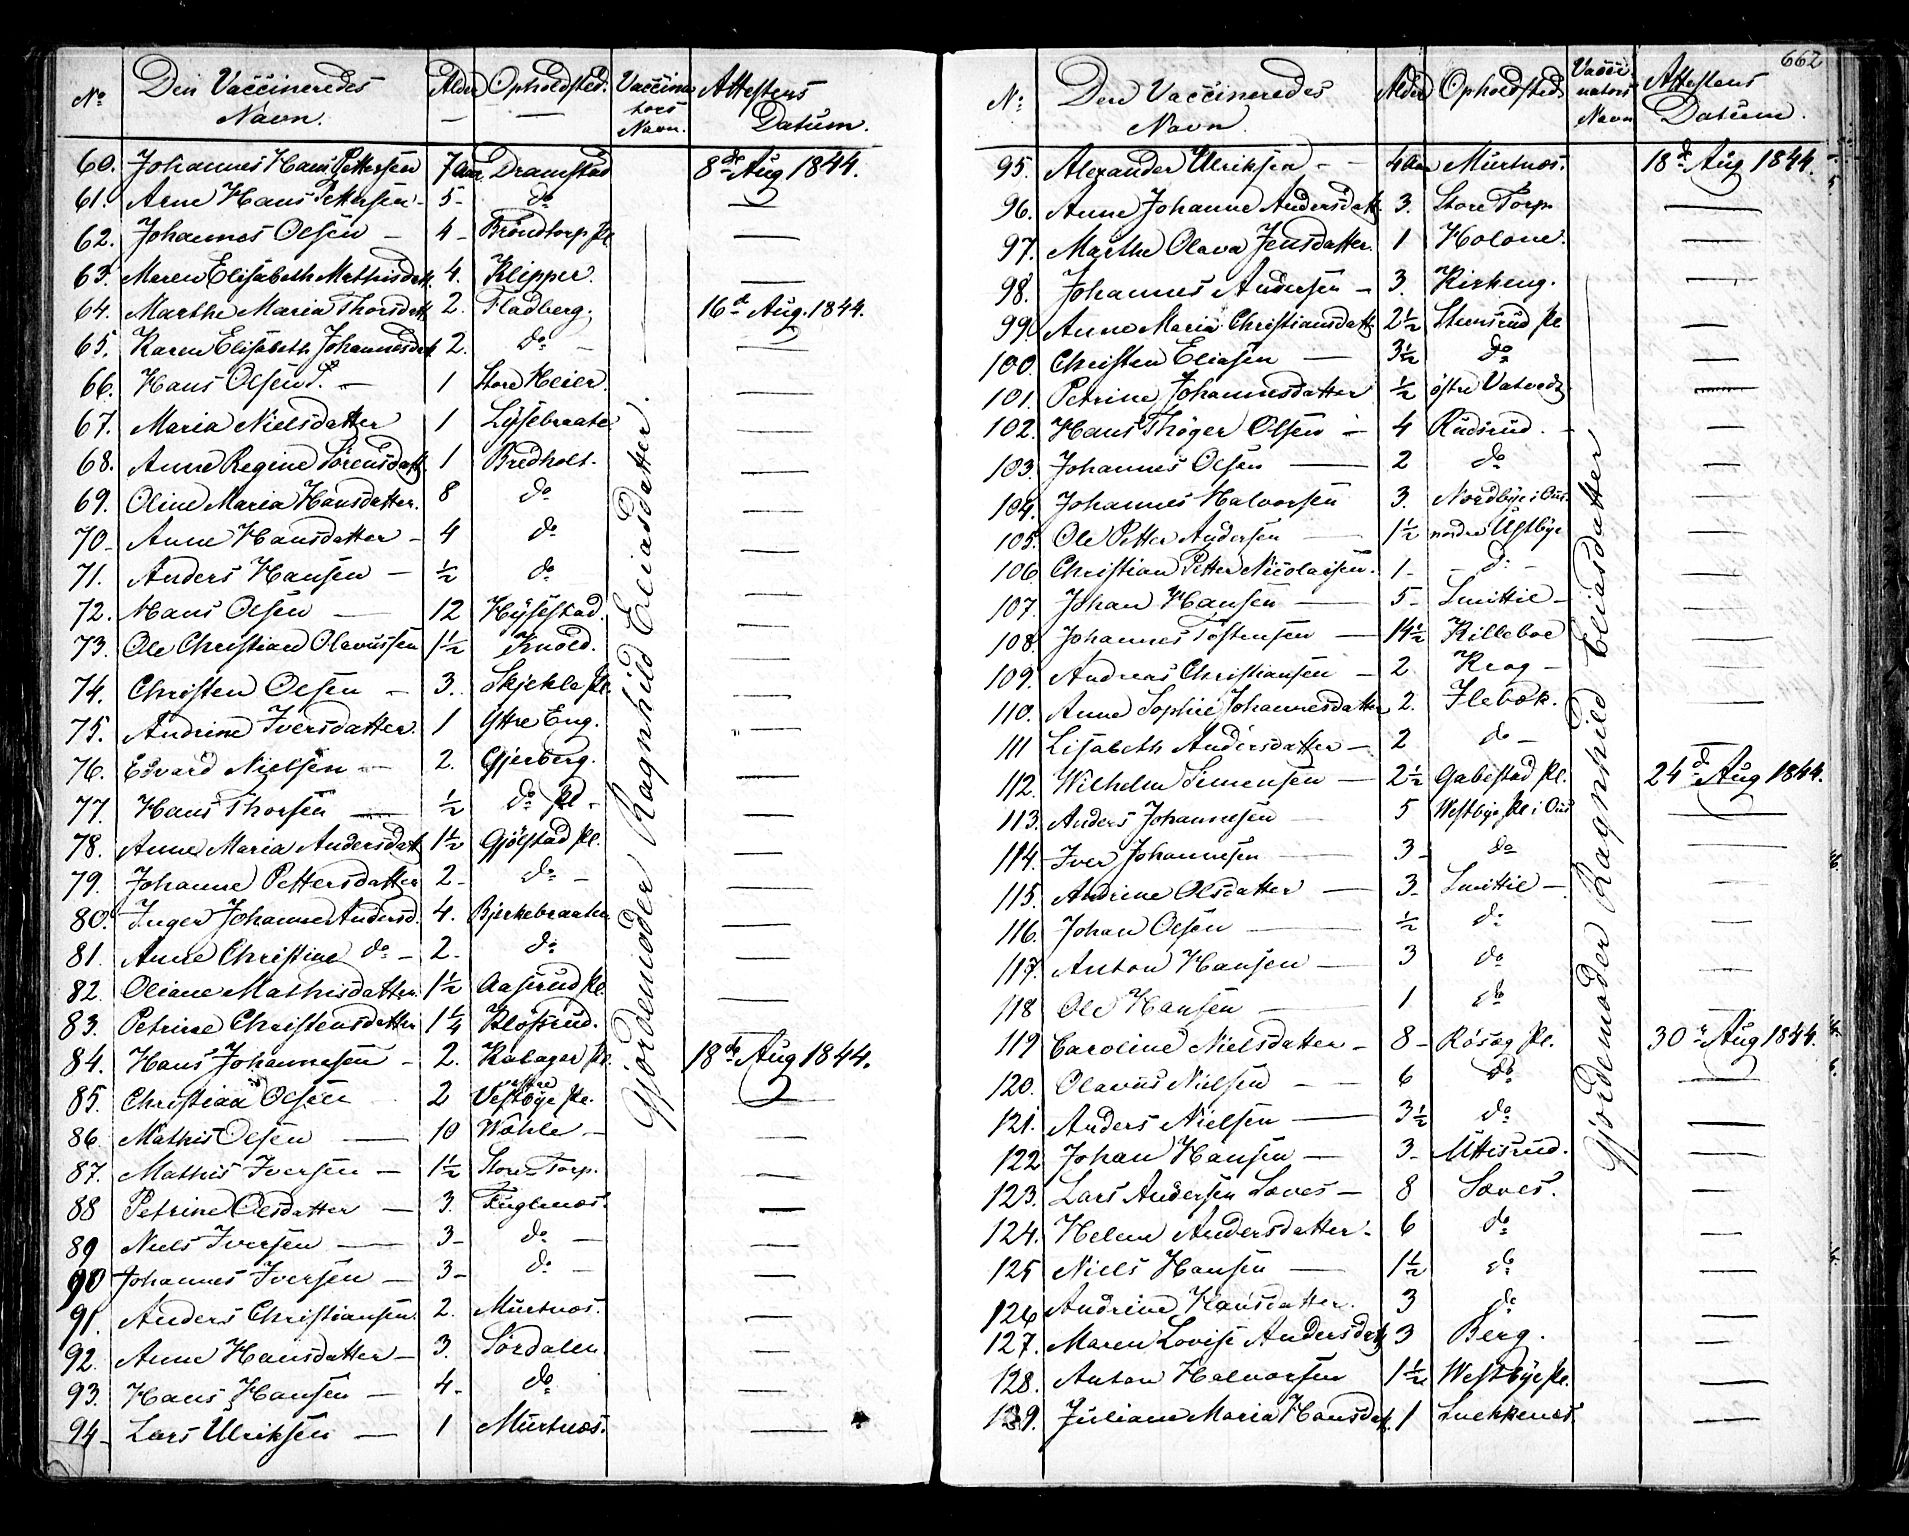 No Den Vaccineredes Navn. Alder Opholdsted. Vaccinators Navn. Attestens Datum.
60. Johannes Hans Pettersen 7 Aar Dramstad 8de Aug 1844.
61. Arne Hans Pettersen - 5 - do —
62. Johannes Olsen — 4 - Bröndtorp Pl. —
63. Maren Elisabeth Mathisdatt. 4. Klipper. —
64. Marthe Maria Thorsdatt 2. Fladberg. 16de Aug. 1844.
65. Karen Elisabeth Johannesdatt 2. do — —
66. Hans Olsen — 1 Store Heier. —
67. Maria Nielsdatter 1 Lysebraate —
68. Anne Regine Sörensdatt 1 Bredholt. —
69. Oline Maria Hansdatter. 8 do —
70 - Anne Hansdatter - 4 do —
71. Anders Hansen — ½ do —
72. Hans Olsen — 12 Hysestad. —
73. Ole Christian Olavussen 1½ Knold. —
74. Christen Olsen — 3. Skjekle Pl. —
75. Andrine Iversdatter. 1 Ytre Eng. —
76. Edvard Nielsen — 2. Gjerberg. —
77. Hans Thorsen — ½ do Pl - —
78. Anne Maria Andersdatt 1½ Gjölstad Pl. —
79. Johanne Pettersdatter 2 - do — —
80. Inger Johanne Andersd. 4. Bjerkebraaten —
81. Anne Christine do - 2. do —
82. Oliane Mathisdatter. 1½ Aaserud Pl. —
83. Petrine Christensdatter 1¼ Klöfsrud. —
84. Hans Johannesen - 2. Kalager Pl. 18de Aug 1844.
85. Christian Olsen 2 vestre Vestbye Pl. —
86. Mathis Olsen — 10 Wahle — —
87. Mathis Iversen — 1½ Store Torp. —
88 Petrine Olsdatter — 3. Fuglenæs. —
89 Niels Iversen — 3 - do — —
90 Johannes Iversen — 3 - do — —
91. Anders Christiansen. 2. Murtnæs. —
92. Anne Hansdatter — 3. Sördalen —
93. Hans Hansen — 4 - do —
94 - Lars Ulriksen — 1 Murtnæs. —
Gjordemoder Ragnhild Eliasdatter.
662
No Den Vaccineredes Navn. Alder Opholdsted. Vaccinators Navn Attestens Datum.
95. Alexander Ulriksen - — 4 Aar Murtnæs. 18de Aug 1844.
96. Anne Johanne Andersdatt. 3. Store Torp —
97. Marthe Olava Jensdatter. 1 Holone. —
98. Johannes Andersen — 3. Kirkeng. —
99. Anne Maria Christiansdatt. 2½ Stensrud Pl —
100. Christen Eliasen — 3½ do —
101. Petrine Johannesdatter ½ östre Vatvedt —
102. Hans Thöger Olsen — 4 Rudsrud. —
103. Johannes Olsen — 2 do —
104. Johannes Halvorsen 3. Nordbye i Ous. —
105. Ole Petter Andersen — 1½ nordre Ustbye —
106 Christian Petter Nicolaisen. 1 - — do — —
107. Johan Hansen — 5 - Smittil — —
108. Johannes Tostensen — 14½ Killeboe —
109. Andreas Christiansen — 2. Krog — —
110. Anne Sophie Johannesdatter 2. Ilebæk. —
111 Lisabeth Andersdatter — 2 do — —
112. Wilhelm Simensen — 2½ Gabestad Pl. 24de Aug 1844.
113. Anders Johannesen — 5 Westbye Pl i Ous —
114. Iver Johannesen — 3 - do —
115. Andrine Olsdatter — 3. Smittil — —
116. Johan Olsen — ½ do —
117. Anton Hansen — 3 do —
118 Ole Hansen — 1. do —
119 Caroline Nielsdatter — 8 - Rösæg Pl. 30te Aug 1844.
120. Olavus Nielsen — 6 do —
121. Anders Nielsen — 3½ do —
122 Johan Hansen — 3 - Uttisrud. —
123. Lars Andersen Sæves — 8 Sæves. —
124. Helene Andersdatter. 6 do —
125 Niels Hansen — 1½ do —
126 Andrine Hansdatter. 3 do —
127. Maren Lovise Andersdatt 3 Berg. —
128. Anton Halvorsen 1½ Westbye Pl. —
129. Juliane Maria Hansdatt. 1 Snekkenæs. —
Gjordemoder Ragnhild Eliasdatter